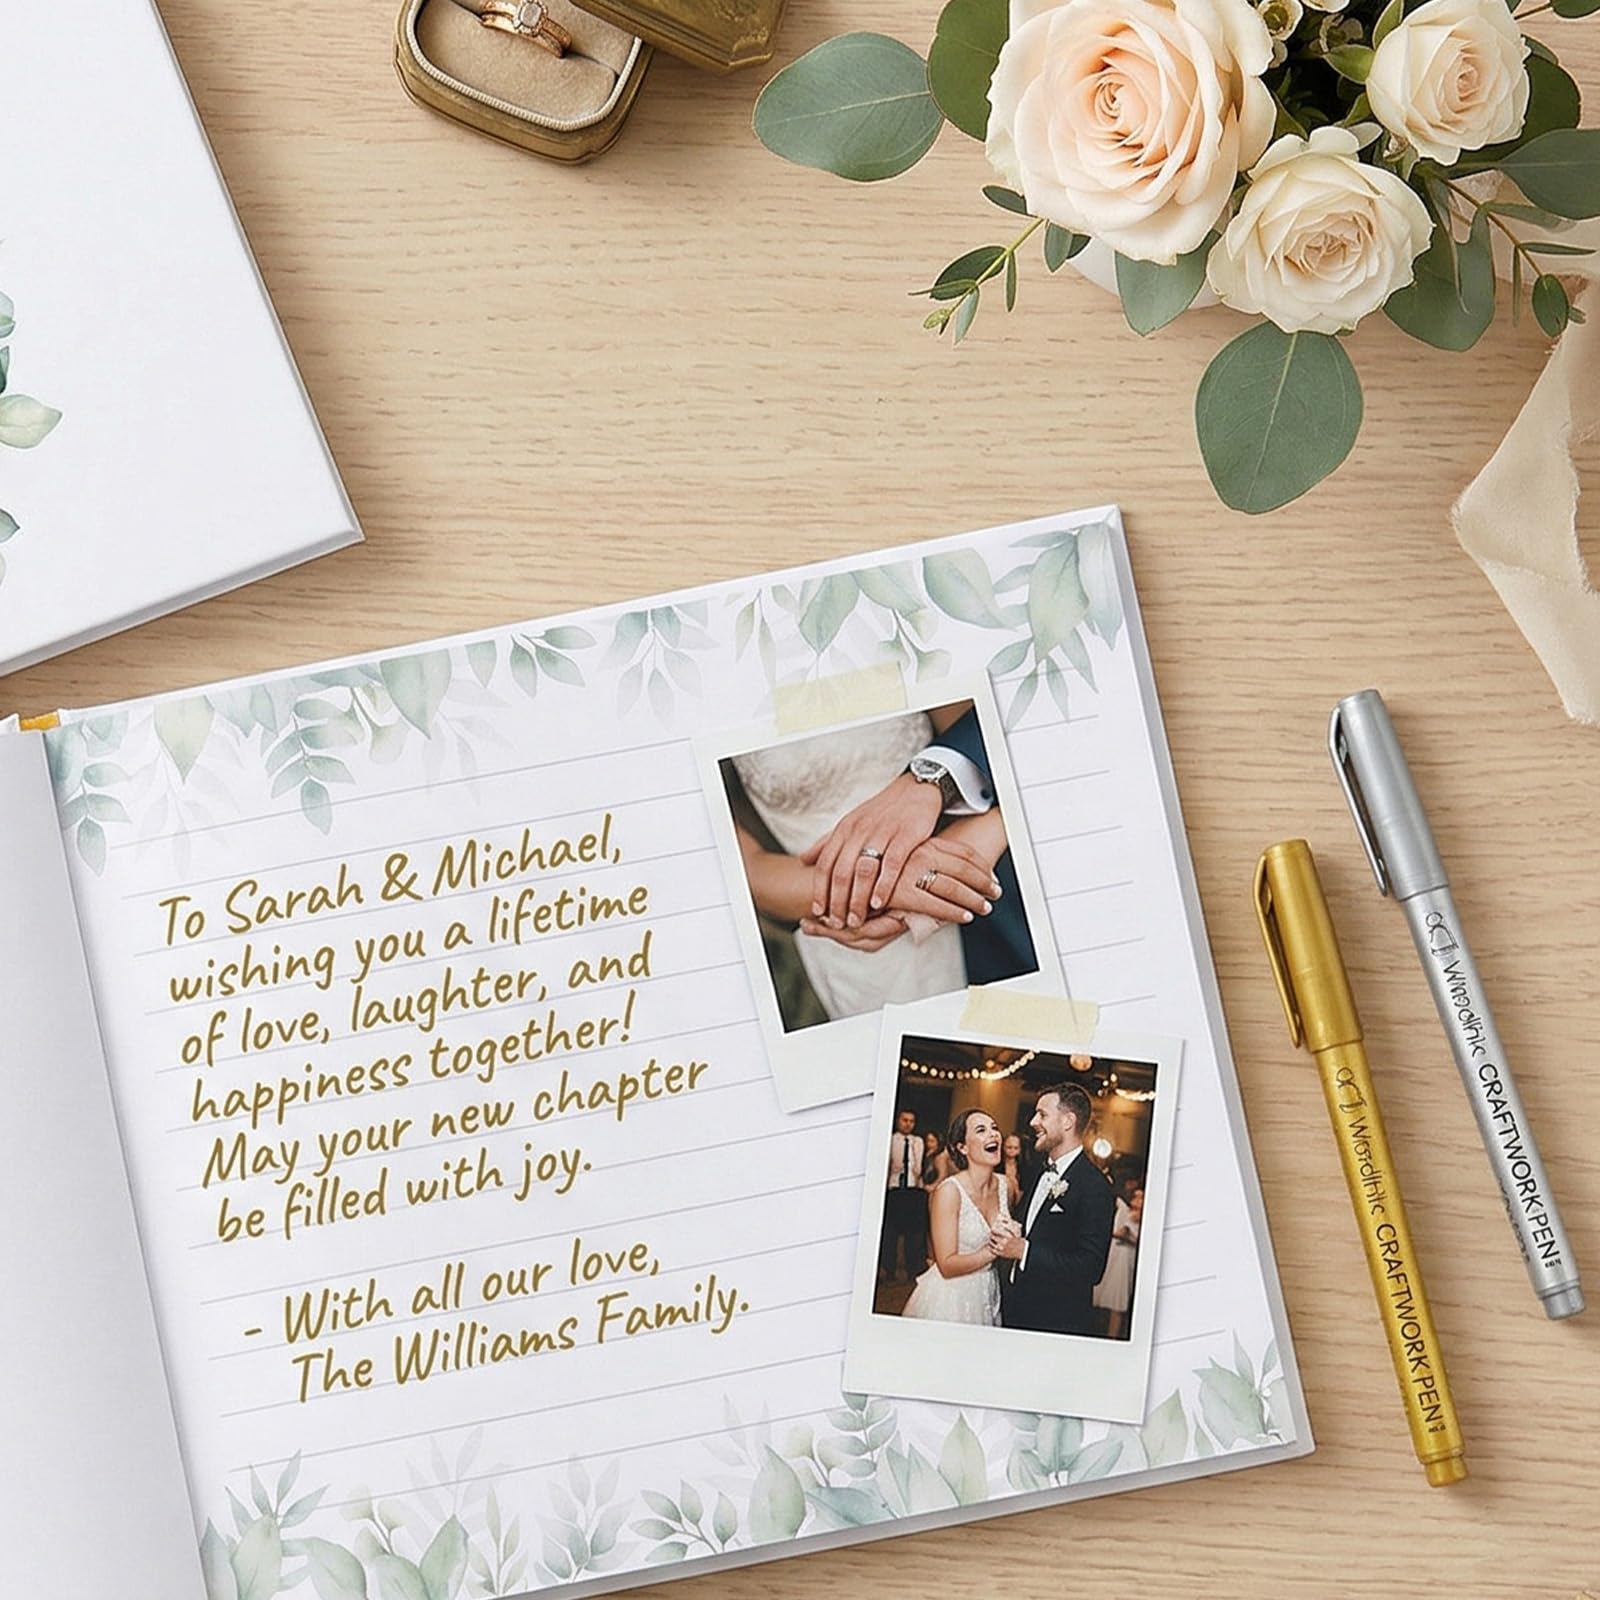 To Sarah & Michael,
wishing you a lifetime
of love, laughter, and
happiness together!
May your new chapter
be filled with joy.
- With all our love,
The Williams Family.
CRAFTWORK PEN
CRAFTWORK PEN